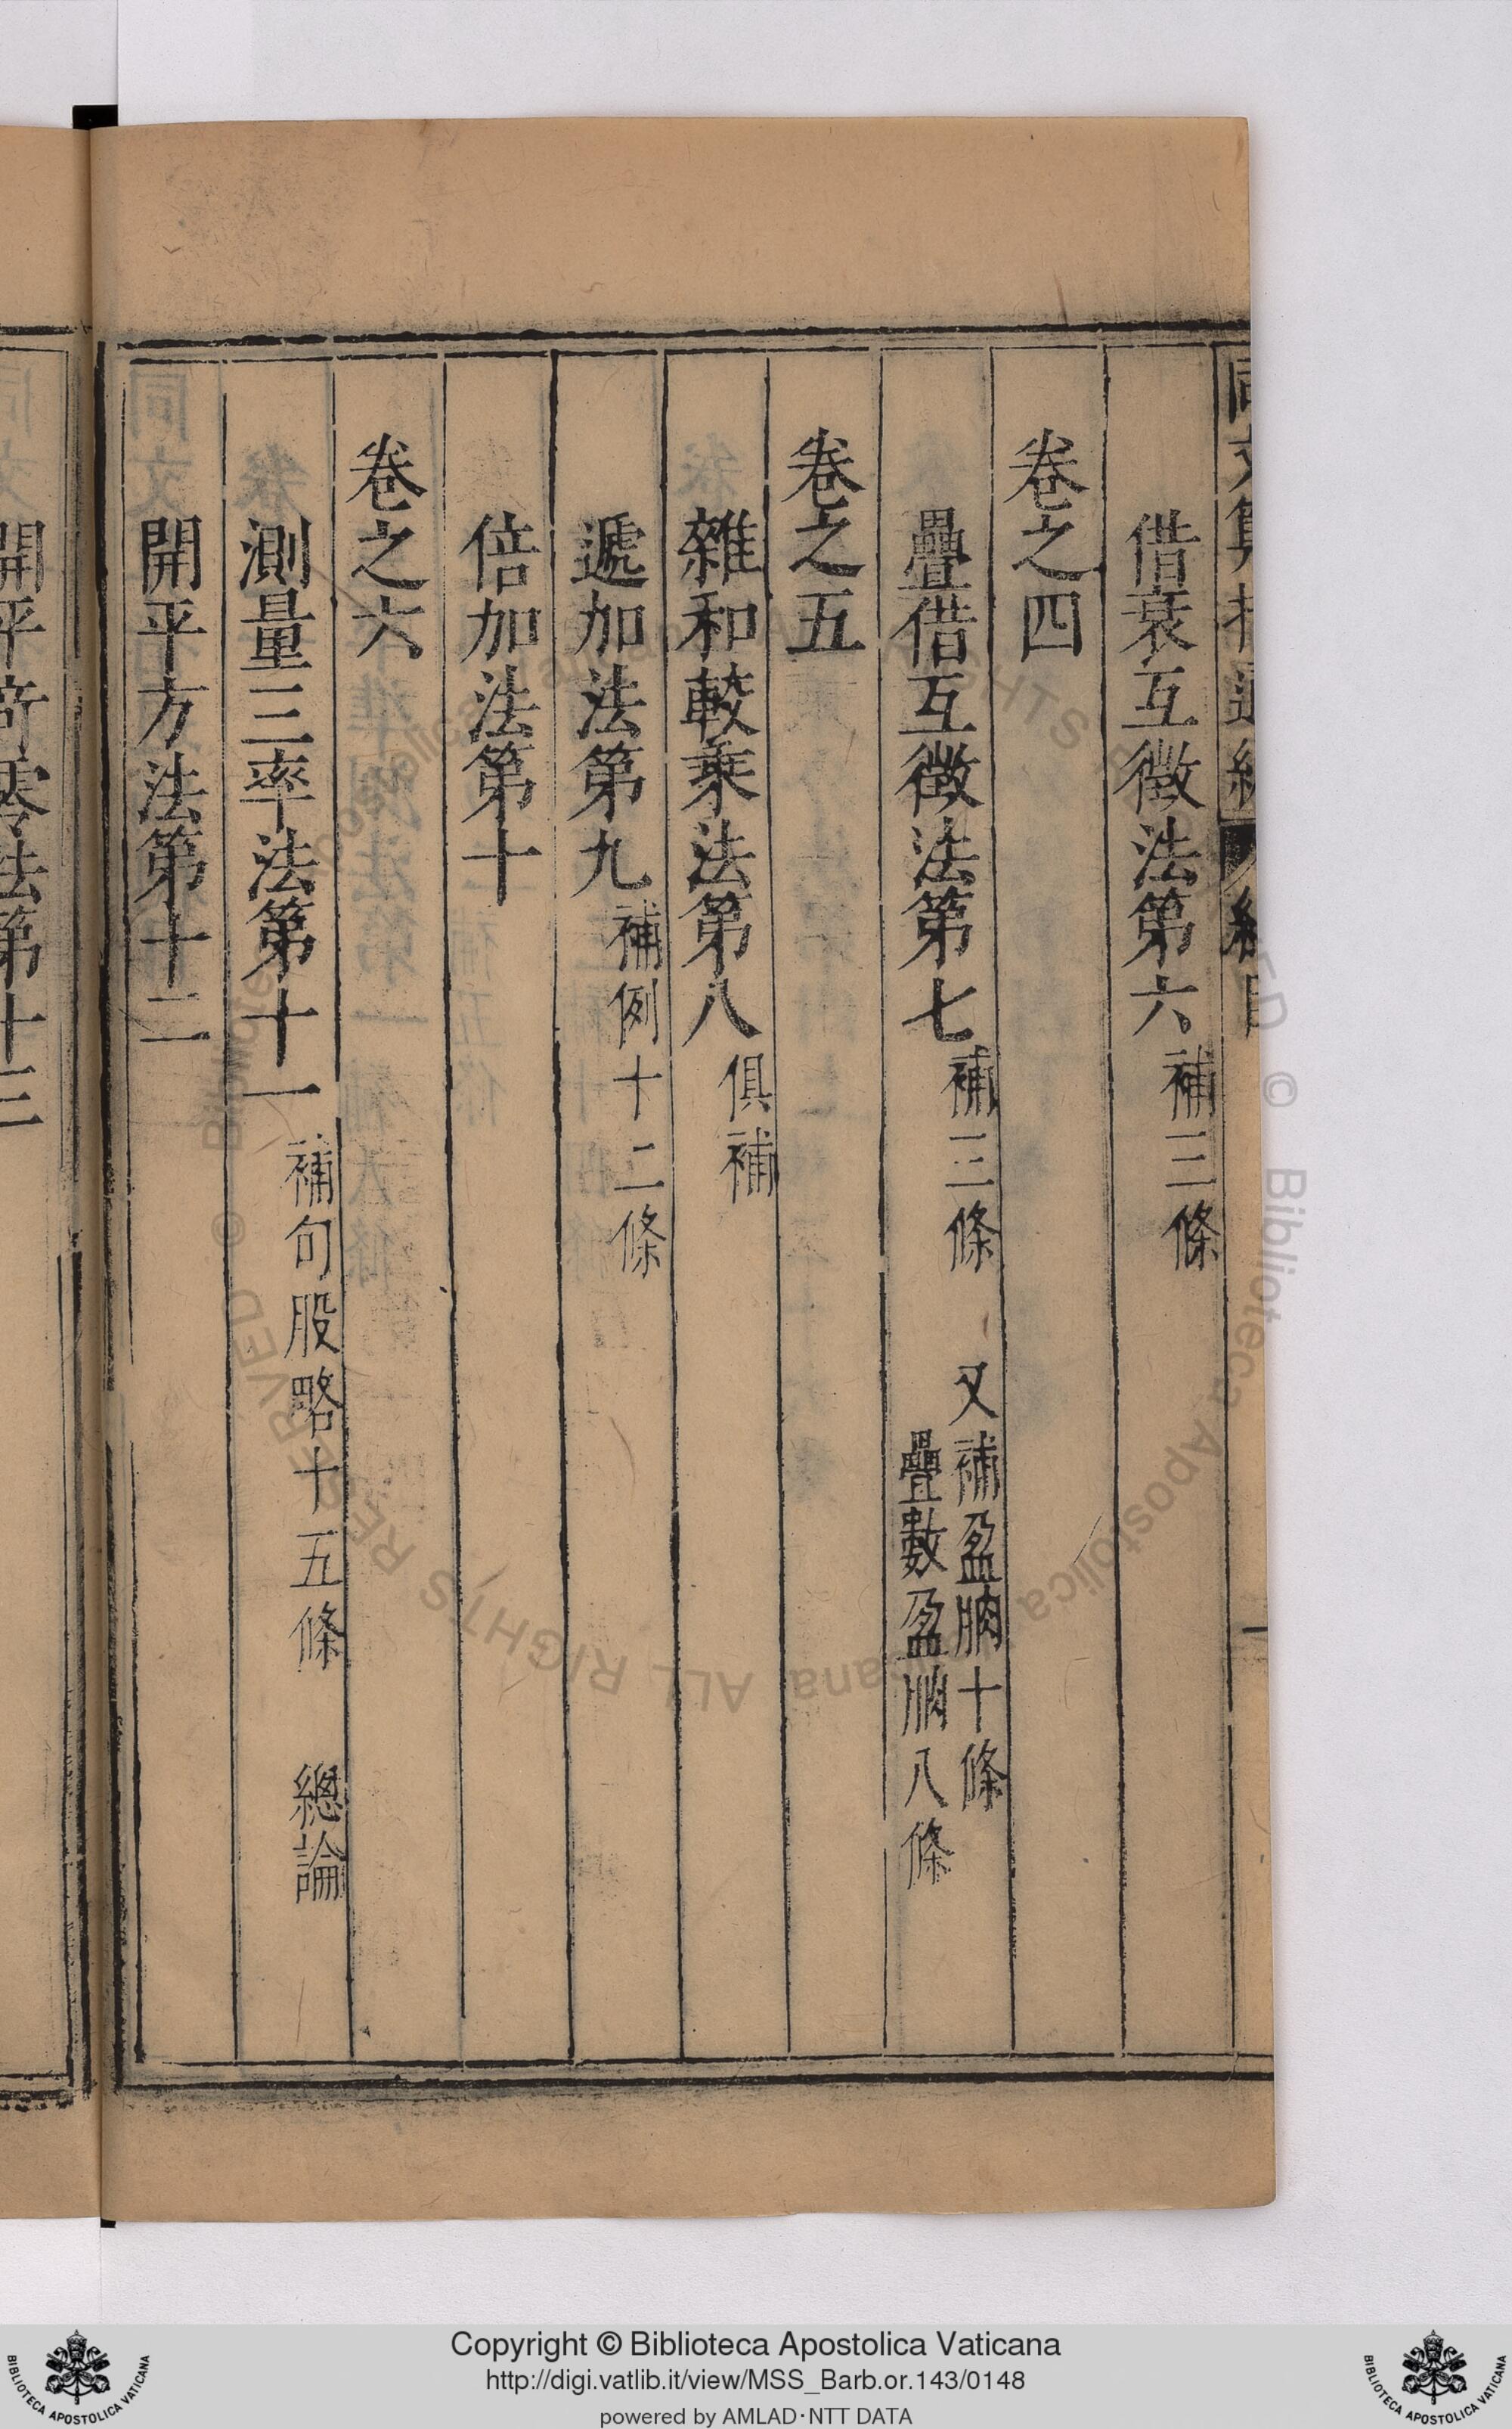 借衰互徵法第六 補三條
卷之四
疊借互徵法第七 補三條 又補盈朒十條
疊數盈朒八條
卷之五
雜和較乘法第八 俱補
遞加法第九 補例十二條
倍加法第十
卷之六
測量三率法第十一 補句股略十五條 總論
開平方法第十二
開平奇零法第十三
Copyright © Biblioteca Apostolica Vaticana
http://digi.vatlib.it/view/MSS_Barb.or.143/0148
powered by AMLAD·NTT DATA
BIBLIOTECA APOSTOLICA VATICANA
BIBLIOTECA APOSTOLICA VATICANA